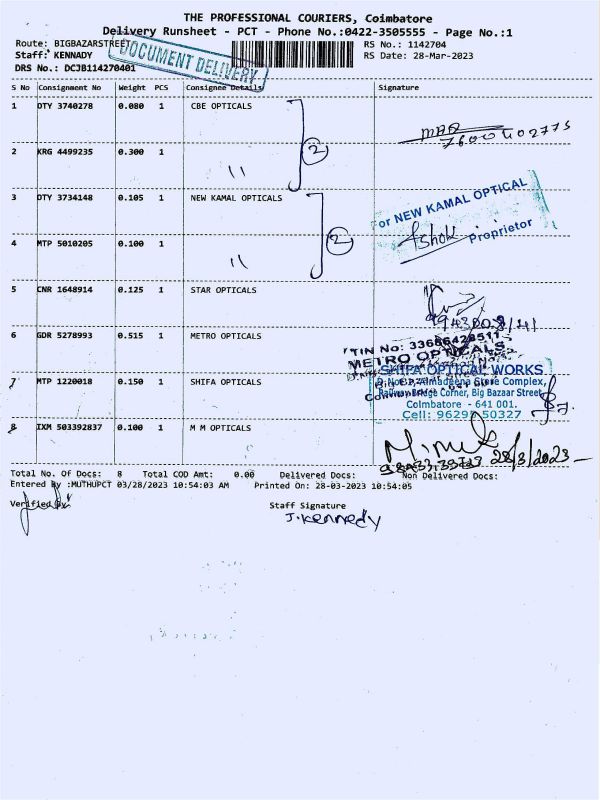 THE PROFESSIONAL COURIERS, Coimbatore
Delivery Runsheet - PCT - Phone No.:0422-3505555 - Page No.:1
Route: BIGBAZARSTREET
RS No.: 1142704
Staff: KENNADY
RS Date: 28-Mar-2023
DRS No.: DCJB114270401
DOCUMENT DELIVERY
S No Consignment No Weight PCS Consignee Details Signature
1 DTY 3740278 0.080 1 CBE OPTICALS
2 KRG 4499235 0.300 1 "
2
3 DTY 3734148 0.105 1 NEW KAMAL OPTICALS
For NEW KAMAL OPTICAL
Ashok Proprietor
4 MTP 5010205 0.100 1 "
2
5 CNR 1648914 0.125 1 STAR OPTICALS
6 GDR 5278993 0.515 1 METRO OPTICALS
TIN No: 33686428511
METRO OPTICALS
7 MTP 1220018 0.150 1 SHIFA OPTICALS
SHIFA OPTICAL WORKS
Almadeena Store Complex,
Railway Bridge Corner, Big Bazaar Street,
Coimbatore - 641 001.
Cell: 96295 50327
8 IXM 503392837 0.100 1 M M OPTICALS
28/3/2023
Total No. Of Docs: 8 Total COD Amt: 0.00 Delivered Docs: Non Delivered Docs:
Entered By :MUTHUPCT 03/28/2023 10:54:03 AM Printed On: 28-03-2023 10:54:05
Verified By
Staff Signature
J. Kennedy